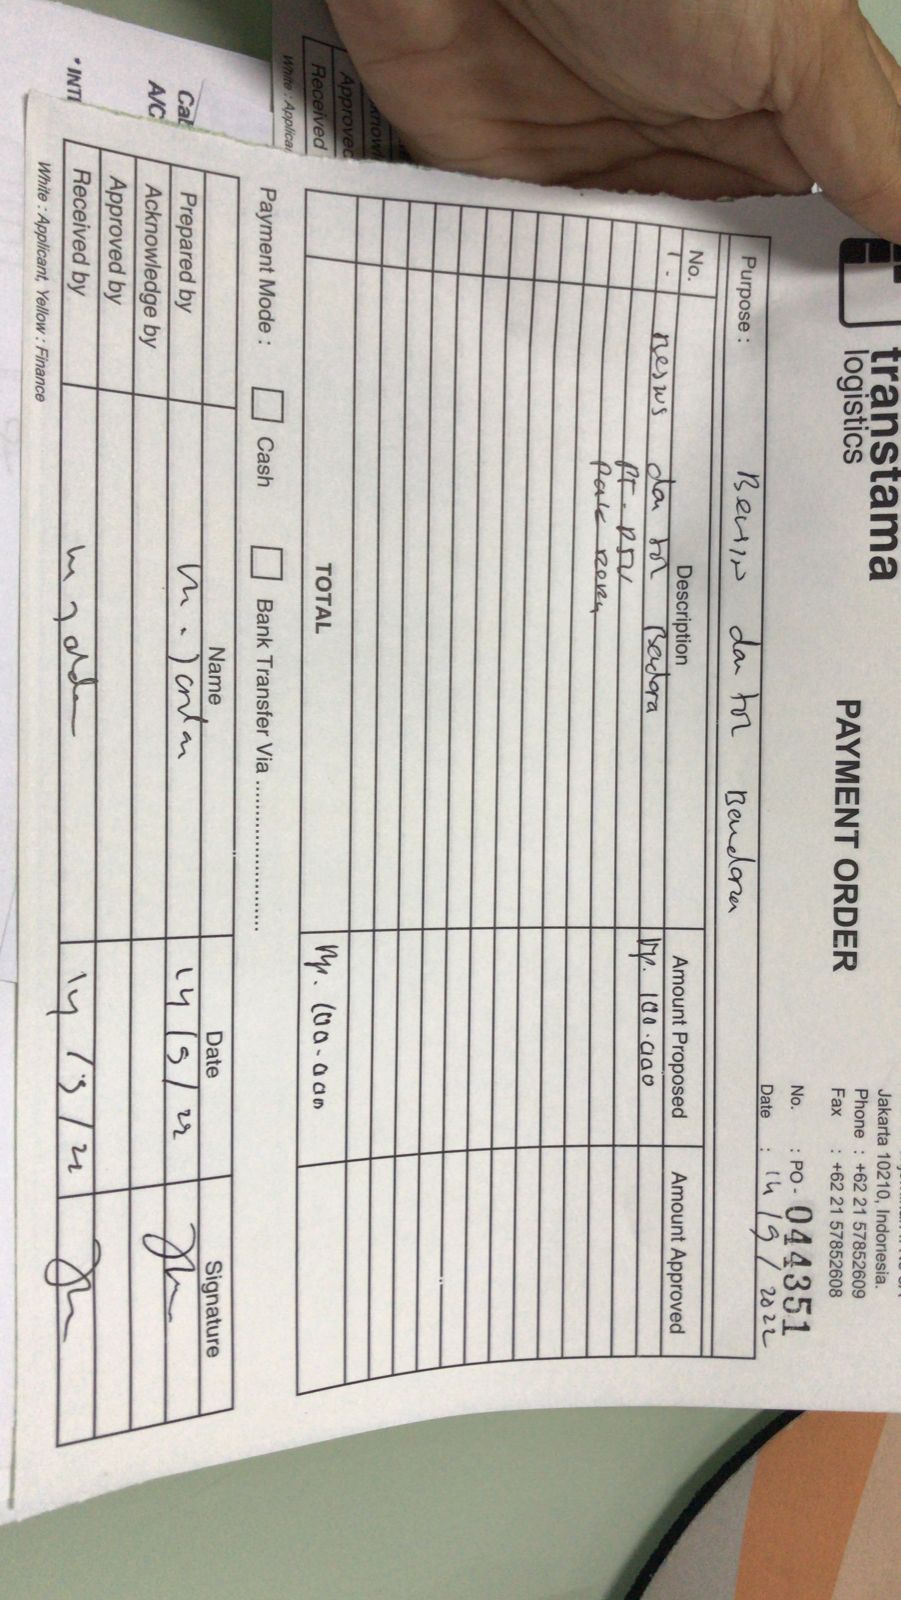 transtama
logistics
PAYMENT ORDER
Jakarta 10210, Indonesia.
Phone : +62 21 57852609
Fax : +62 21 57852608
No. : PO - 044351
Date : 14/9/2022
Purpose : Bensin dan tol Bandara
No. Description Amount Proposed Amount Approved
1. dan tol Bandara Rp. 100.000
PT.
Pak
TOTAL Rp. 100.000
Payment Mode : Cash Bank Transfer Via ........................
Name Date Signature
Prepared by M. 14/9/22
Acknowledge by
Approved by
Received by 14/9/22
White : Applicant, Yellow : Finance
Approved
Received
White : Applica
A/C
* INTE